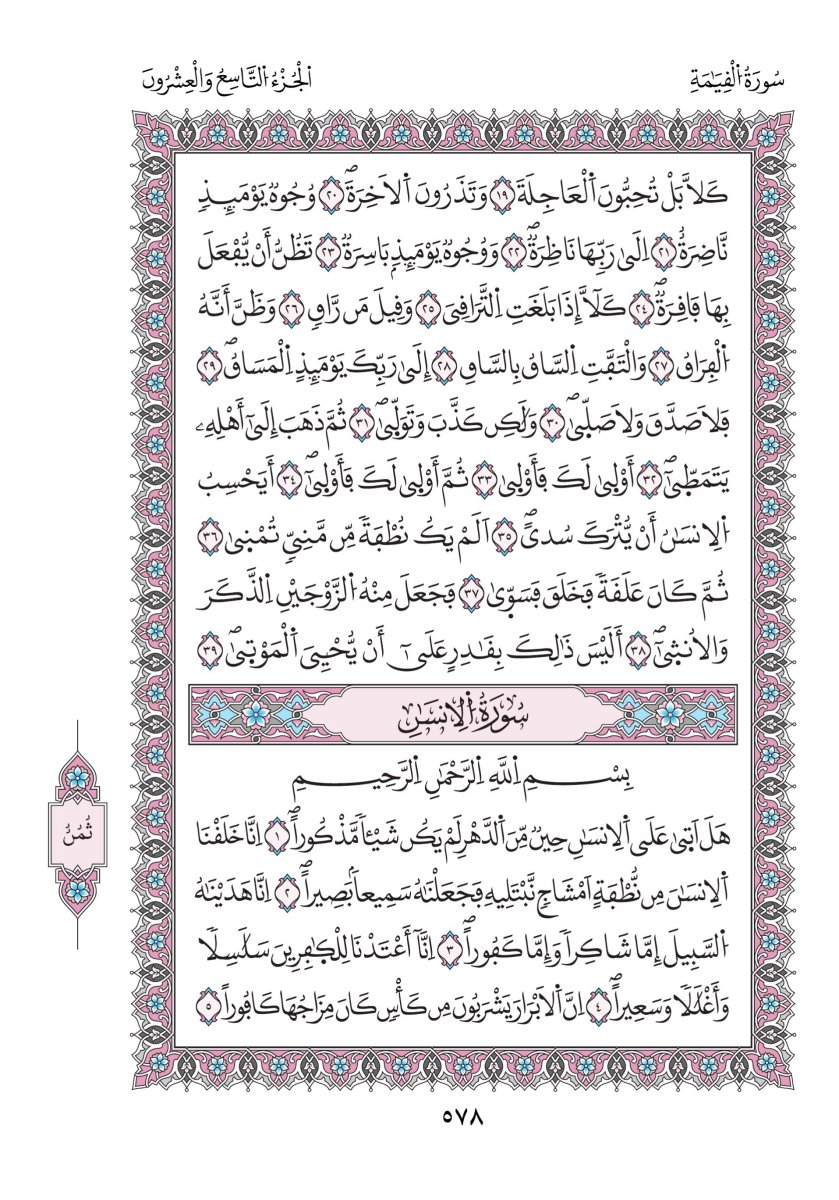 سُورَةُ اُ۬لْقِيَٰمَةِ
اَ۬لْجُزْءُ اُ۬لتَّاسِعُ وَالْعِشْرُونَ
كَلَّا بَلْ تُحِبُّونَ اَ۬لْعَاجِلَةَ ١٩ وَتَذَرُونَ اَ۬لَاخِرَةَۖ ٢٠ وُجُوهٞ يَوْمَئِذٖ
نَّاضِرَةٌ ٢١ اِلَىٰ رَبِّهَا نَاظِرَةٞۖ ٢٢ وَوُجُوهٞ يَوْمَئِذِۢ بَاسِرَةٞ ٢٣ تَظُنُّ أَنْ يُّفْعَلَ
بِهَا فَاقِرَةٞۖ ٢٤ كَلَّآ إِذَا بَلَغَتِ اِ۬لتَّرَاقِيَ ٢٥ وَقِيلَ مَن رَّاقٖ ٢٦ وَظَنَّ أَنَّهُ
اُ۬لْفِرَاقُ ٢٧ وَالْتَفَّتِ اِ۬لسَّاقُ بِالسَّاقِ ٢٨ إِلَىٰ رَبِّكَ يَوْمَئِذٍ اِ۬لْمَسَاقُۖ ٢٩
فَلَا صَدَّقَ وَلَا صَلّ۪ىٰۖ ٣٠ وَلَٰكِن كَذَّبَ وَتَوَلّ۪ىٰۖ ٣١ ثُمَّ ذَهَبَ إِلَىٰٓ أَهْلِهِۦ
يَتَمَطّ۪ىٰٓۖ ٣٢ أَوْل۪ىٰ لَكَ فَأَوْل۪ىٰ ٣٣ ثُمَّ أَوْل۪ىٰ لَكَ فَأَوْل۪ىٰٓۖ ٣٤ أَيَحْسِبُ
اُ۬لِانسَٰنُ أَنْ يُّتْرَكَ سُدىًۖ ٣٥ اَلَمْ يَكُ نُطْفَةٗ مِّن مَّنِيّٖ تُمْن۪ىٰ ٣٦
ثُمَّ كَانَ عَلَقَةٗ فَخَلَقَ فَسَوّ۪ىٰ ٣٧ فَجَعَلَ مِنْهُ اُ۬لزَّوْجَيْنِ اِ۬لذَّكَرَ
وَالُانث۪ىٰٓۖ ٣٨ أَلَيْسَ ذَٰلِكَ بِقَٰدِرٍ عَلَىٰٓ أَنْ يُّحْـِۧيَ اَ۬لْمَوْت۪ىٰۖ ٣٩
سُورَةُ اُ۬لِانسَٰنِ
بِسْمِ اِ۬للَّهِ اِ۬لرَّحْمَٰنِ اِ۬لرَّحِيمِ
هَلَ اَت۪ىٰ عَلَى اَ۬لِانسَٰنِ حِينٞ مِّنَ اَ۬لدَّهْرِ لَمْ يَكُن شَيْـٔاٗ مَّذْكُوراًۖ ١ اِنَّا خَلَقْنَا
اَ۬لِانسَٰنَ مِن نُّطْفَةٍ اَمْشَاجٖ نَّبْتَلِيهِ فَجَعَلْنَٰهُ سَمِيعاَۢ بَصِيراًۖ ٢ اِنَّا هَدَيْنَٰهُ
اُ۬لسَّبِيلَ إِمَّا شَاكِراٗ وَإِمَّا كَفُوراًۖ ٣ اِنَّآ أَعْتَدْنَا لِلْكٰ۪فِرِينَ سَلَٰسِلاٗ
وَأَغْلَٰلاٗ وَسَعِيراًۖ ٤ اِنَّ اَ۬لَابْرَارَ يَشْرَبُونَ مِن كَأْسٖ كَانَ مِزَاجُهَا كَافُوراً ٥
ثُمُنُ
٥٧٨